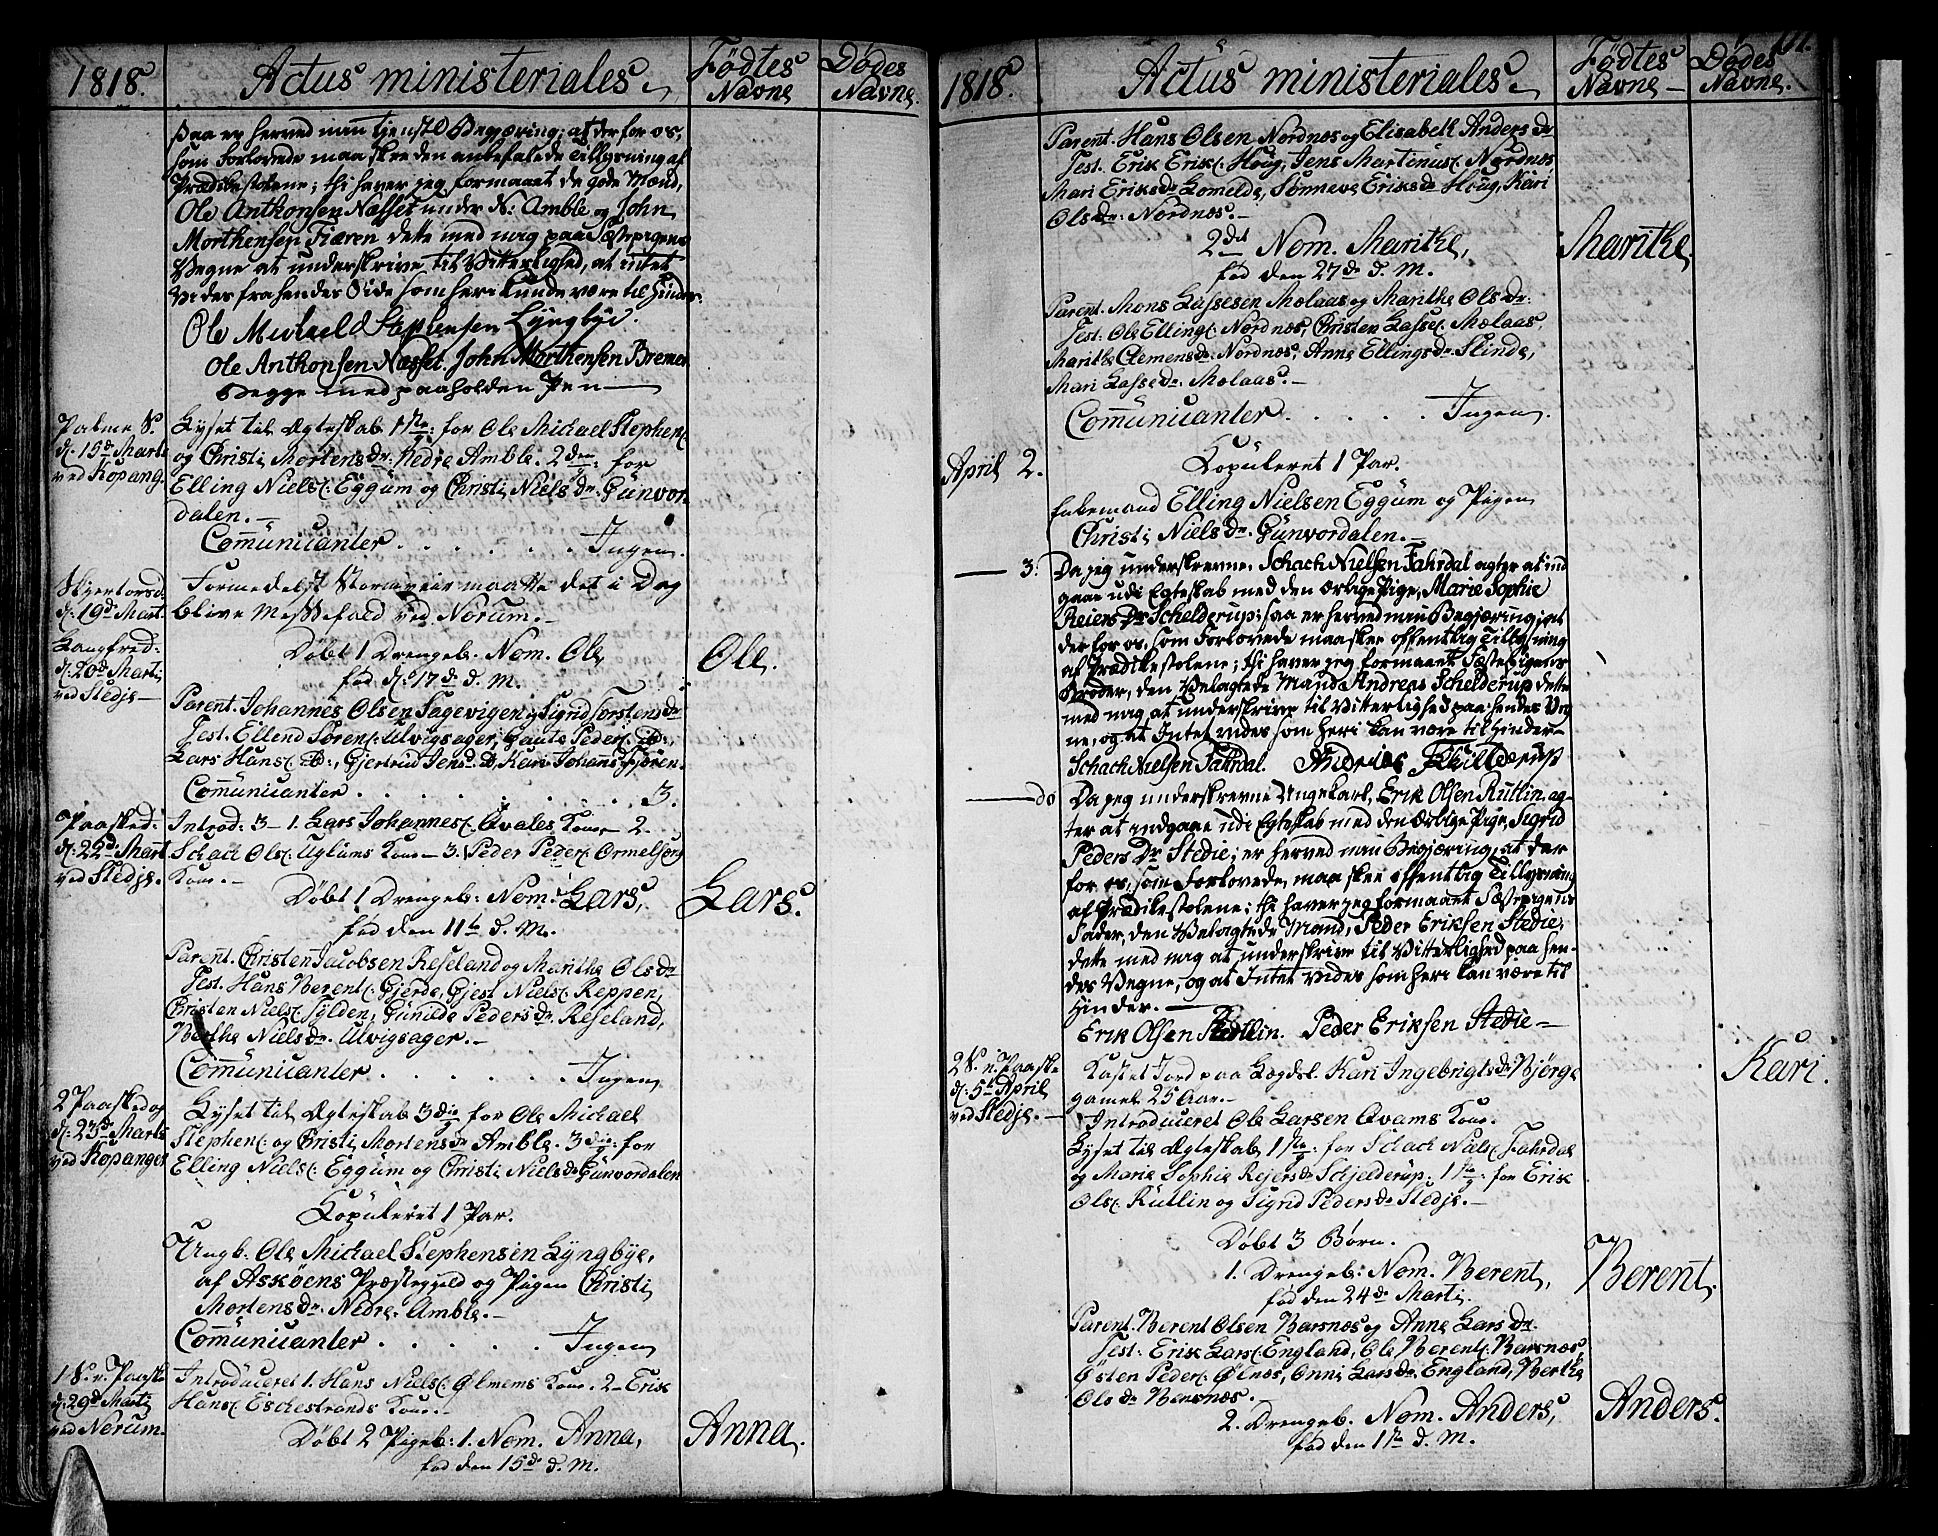 1818.
Actus ministeriales.
Fødtes Navne
Dødes Navne.
Saa er herved min tjenstl. Begjæring; at der for os,
som Forlovede maa skee den anbefalede Tillysning af
Prædikestolene; thi haver jeg formaaet de gode Mænd,
Ole Anthonsen Næsset under N: Amble og John
Morthensen Fiæren dette med mig paa Fæstepigens
Vegne at underskrive til Vitterlighed, at intet
Vides fra hendes Side som heri kunde være til Hinder.
Ole Michaeld Stephensen Lyngbye.
Ole Anthonsen Næsset. John Morthensen Bremer
Begge med paaholden Pen
Palme S.
d. 15de Marti
ved Kopang.
Lyset til Ægteskab 1ste: for Ole Michael Stephens.
og Christi Mortensdr. Nedre Amble. 2den: for
Elling Niels. Eggum og Christi Nielsdr. Gunvor
dalen.
Communicanter . . . . . . Ingen.
Skjertorsd.
d: 19de Mart.
Formedelst Stormveir maatte det i Dag
blive Messefald ved Norum.
Langfred:
d: 20de Marti
ved Stedje
Døbt 1 Drengeb. Nom. Ole,
fød d. 17de d. M.
Ole.
Parent. Johannes Olsen Sagevigen og Sigrid Torstensdr
Test. Ellend Sørens. Ulvigsager, Gaute Peders. ib.,
Lars Hans. ib., Gjertrud Jensd. ib, Kari Johans. Fjøren.
Communicanter . . . . . . . 3.
Paasked:
d. 22de Mart
ved Stedje.
Introd: 3 - 1. Lars Johannes. Qvales Kone 2.
Schack Ols. Uglums Kone - 3. Peder Peders. Ormelsens
Kone.
Døbt 1 Drengeb: Nom. Lars,
fød den 11te d. M.
Lars.
Parent. Christen Jacobsen Reseland og Marithe Olsdr
Test. Hans Berents. Gjerde, Gjest Niels. Reppen,
Christen Niels. Fylden, Gunilde Pedersdr. Reseland,
Berthe Nielsdr. Ulvigsager.
Communicanter . . . . . . Ingen
2 Paasked og
d. 23de Marti
ved Kopanger
Lyset til Ægteskab 3die for Ole Michael
Stephens. og Christi Mortensdr Amble. 3die: for
Elling Niels. Eggum og Christi Nielsdr Gunvordalen
Copuleret 1 Par.
Ungk. Ole Michael Stephensen Lyngbye,
af Askøens Præstegjeld og Pigen Christi
Mortensdr. Nedre-Amble.
Communicanter . . . . . Ingen
1 S. n. Paaske
d. 29de Marti
ved Norum.
Introduceret 1. Hans Niels. Ølmems Kone. 2- Erik
Hans. Eschestrands Kone.
Døbt 2 Pigeb: 1. Nom. Anna,
fød den 15de d. M.
Anna.
1818.
Actus ministeriales.
Fødtes Navne
Dødes Navne.
Parent. Hans Olsen Nordnes og Elisabeth Andersdr
Test. Erik Eriks. Houg, Jens Martinus. Nordnes
Mari Eriksdr Lomelde, Sønneve Eriksdr Houg, Kari
Olsdr: Nordnes.
2det Nom. Marithe,
fød den 27de d. M.
Marithe.
Parent. Mons Lassesen Molaas og Marithe Olsdr:
Test. Ole Ellings. Nordnæs, Christen Lasses. Molaas,
Marithe Clemensdr: Nordnæs, Anne Ellingsdr Slinde,
Mari Lassedr: Molaas.
Communicanter . . . . Ingen.
April 2.
Copuleret 1 Par.
Enkemand Elling Nielsen Eggum og Pigen
Christi Nielsdr. Gunvordalen.
3.
Da jeg underskrevne Schach Nielsen Fahrdal agter at ind
gaae udi Egteskab med den ærlige Pige, Marie Sophie
Reiers Dr Schelderup: saa er herved min Begjæring, at
der for os, som Forlovede maa skee offentlig Tillysning
af Prædikestolene; thi haver jeg formaaet Fæste Pigens
Broder, den Velagtede Mand Andreas Schelderup dette
med mig at underskrive til Vitterlighed paa hendes Veg
ne, og at Intet vides som heri kan være til Hinder.
Schach Nielsen Fahrdal. Andreas Skilderup
do
Da jeg underskrevne Ungekarl, Erik Olsen Rutlin, ag-
ter at indgaae udi Egteskab med den Ærlige Pige, Sigrid
Peders Dr Stedie; er herved min Begjæring, at der
for os, som Forlovede, maa skee offentlig Tillysning
af Prædikestolene; thi haver jeg formaaet Fæstepigens
Fader, den Velagtede Mand, Peder Eriksen Stedie,
dette med mig at underskrive til Vitterlighed paa hen-
des Vegne, og at Intet vides som heri kan være til
Hinder.
Erik Olsen Rutlin. Peder Eriksen Stedie
2 S. n. Paaske
d. 5te April
ved Stedje.
Kastet Jord paa Lægdsl. Kari Ingebrigtsdr Bjørge
gamel 25 Aar.
Kari.
Introduceret Ole Larsen Qvams Kone.
Lyset til Ægteskab 1ste: for Schack Niels. Fahrdal
og Marie Sophie Rejersdr Schjelderup; 1ste: for Erik
Ols. Rutlin og Sigrid Pedersdr Stedje.
Døbt 3 Børn.
1. Drengeb: Nom. Berent,
fød den 24de Marti.
Berent.
Parent. Berent Olsen Barsnes og Anne Larsdr.
Test: Erik Lars. England, Ole Berents. Barsnæs,
Østen Peders. Ølnæs, Onni Larsdr. England, Berthe
Olsdr Barsnæs.
2. Drengeb. Nom. Anders,
fød den 1ste d. M.
Anders.